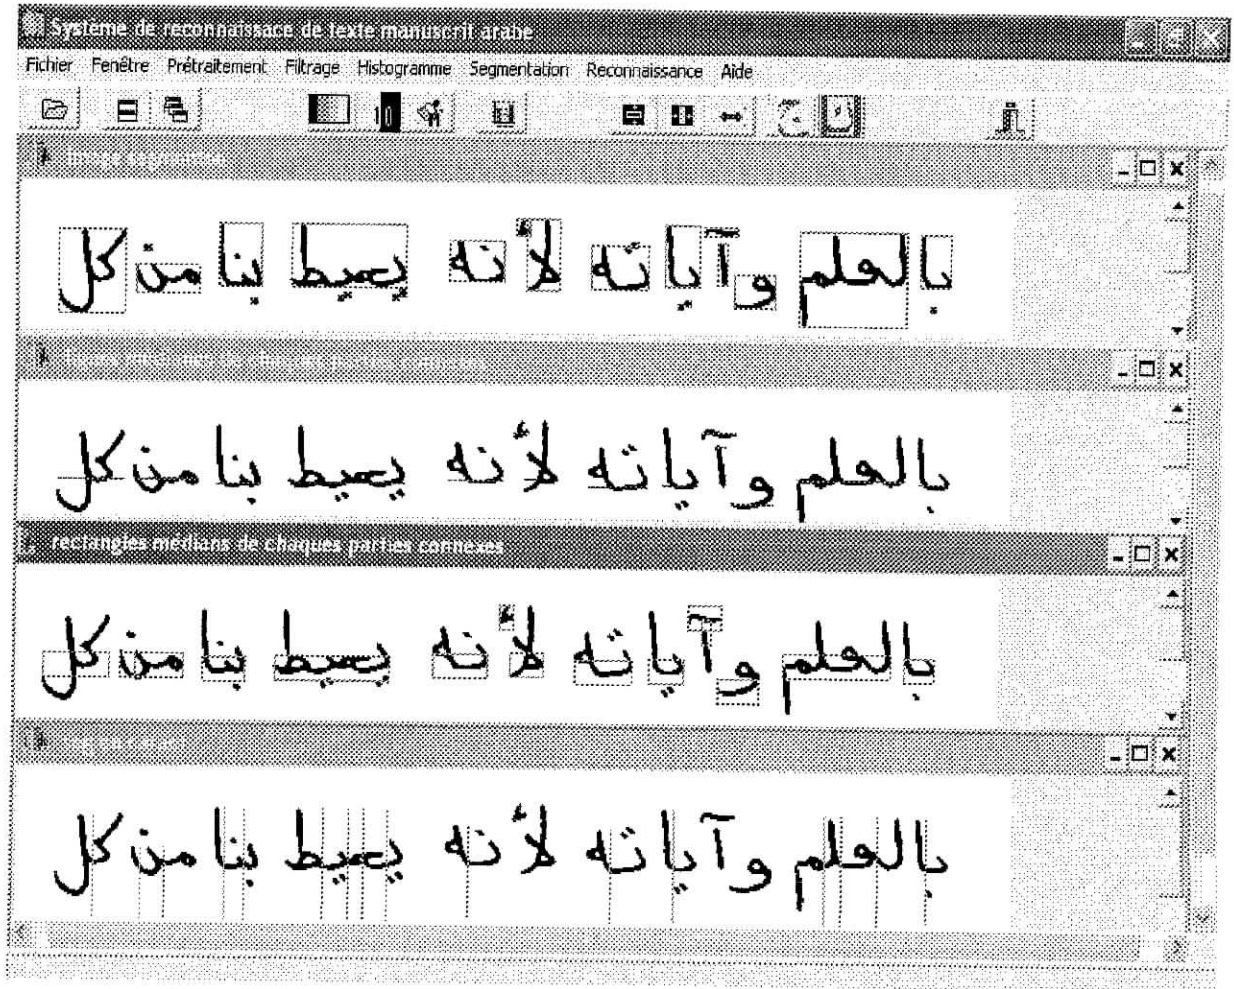 Système de reconnaissace de texte manuscrit arabe
Fichier Fenêtre Prétraitement Filtrage Histogramme Segmentation Reconnaissance Aide
Image
بالعلم وآياته لأنه يحيط بنا من كل
de chaques parties connexes
بالعلم وآياته لأنه يحيط بنا من كل
rectangles médians de chaques parties connexes
بالعلم وآياته لأنه يحيط بنا من كل
بالعلم وآياته لأنه يحيط بنا من كل